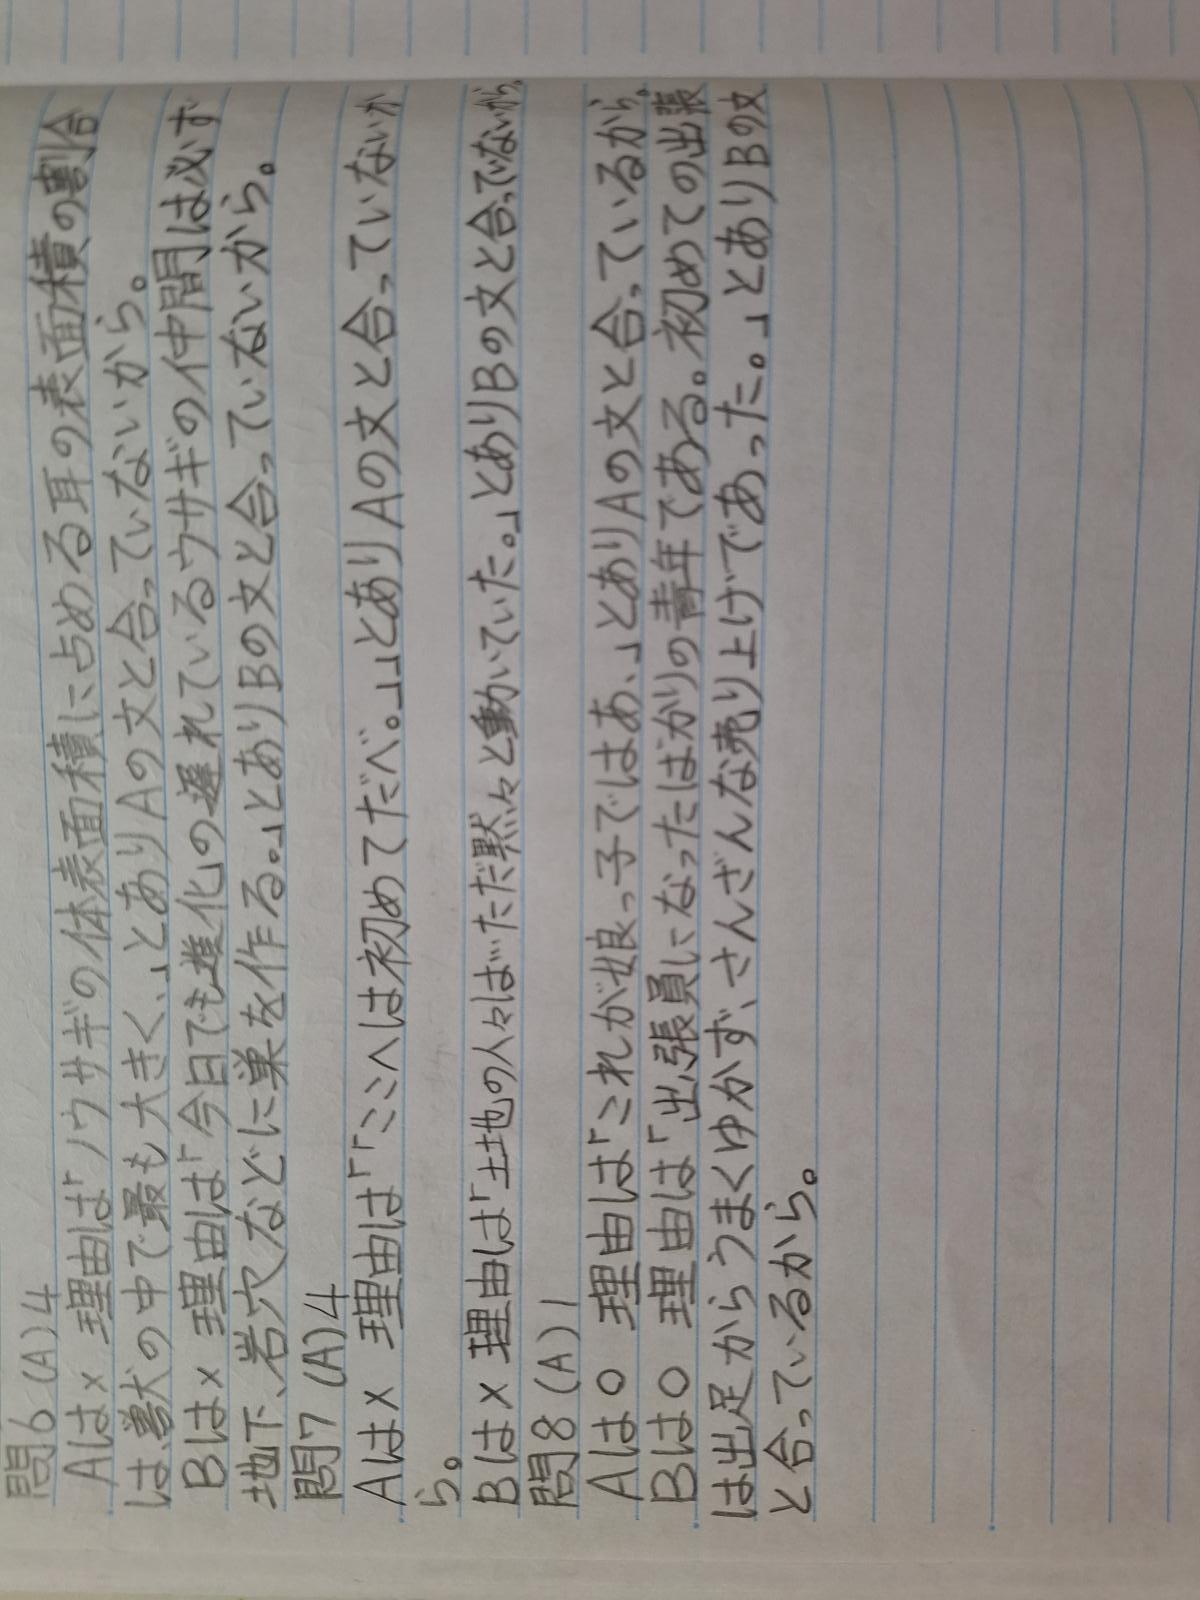 問6 (A)4
Aは× 理由は「ノウサギの体表面積に占める耳の表面積の割合
は、獣の中で最も大きく、」とありAの文と合っていないから。
Bは× 理由は「今日でも進化の遅れているウサギの仲間は必ず
地下、岩穴などに巣を作る。」とありBの文と合っていないから。
問7 (A)4
Aは× 理由は「「ここへは初めてだべ。」」とありAの文と合っていないか
ら。
Bは× 理由は「土地の人々は…ただ黙々と動いていた。」とありBの文と合っでないから。
問8 (A)1
Aは○ 理由は「これが娘っ子ではあ、」とありAの文と合っているから。
Bは○ 理由は「出張員になったばかりの青年である。初めての出張
は出足からうまくゆかず、さんざんな売り上げであった。」とありBの文
と合っているから。